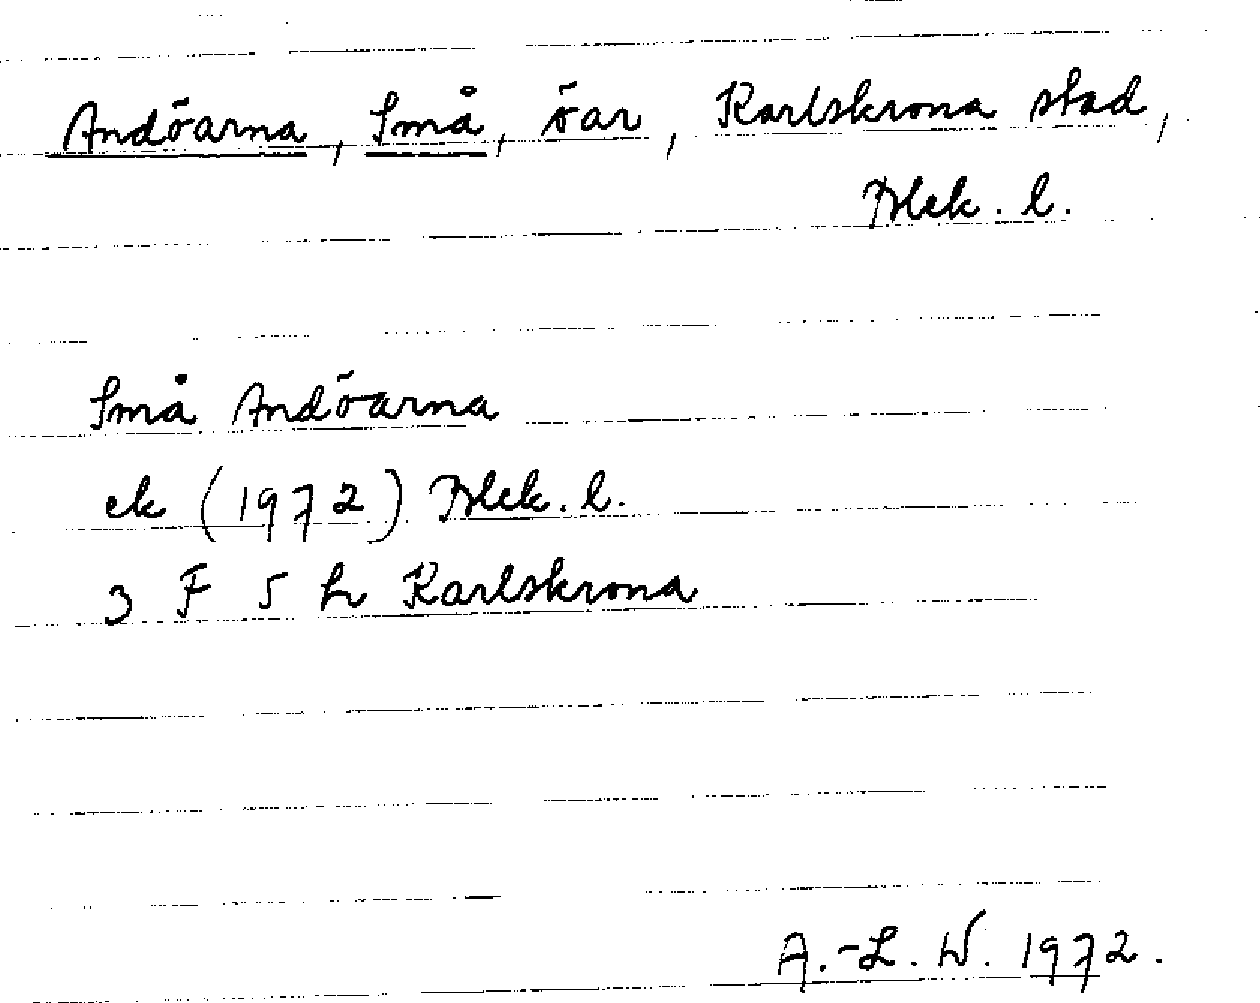 Andöarna, Små, öar, Karlskrona stad,
Blek. l.
Små Andöarna
ek (1972) Blek. l.
3 F 5 h Karlskrona
A.-L. W. 1972.